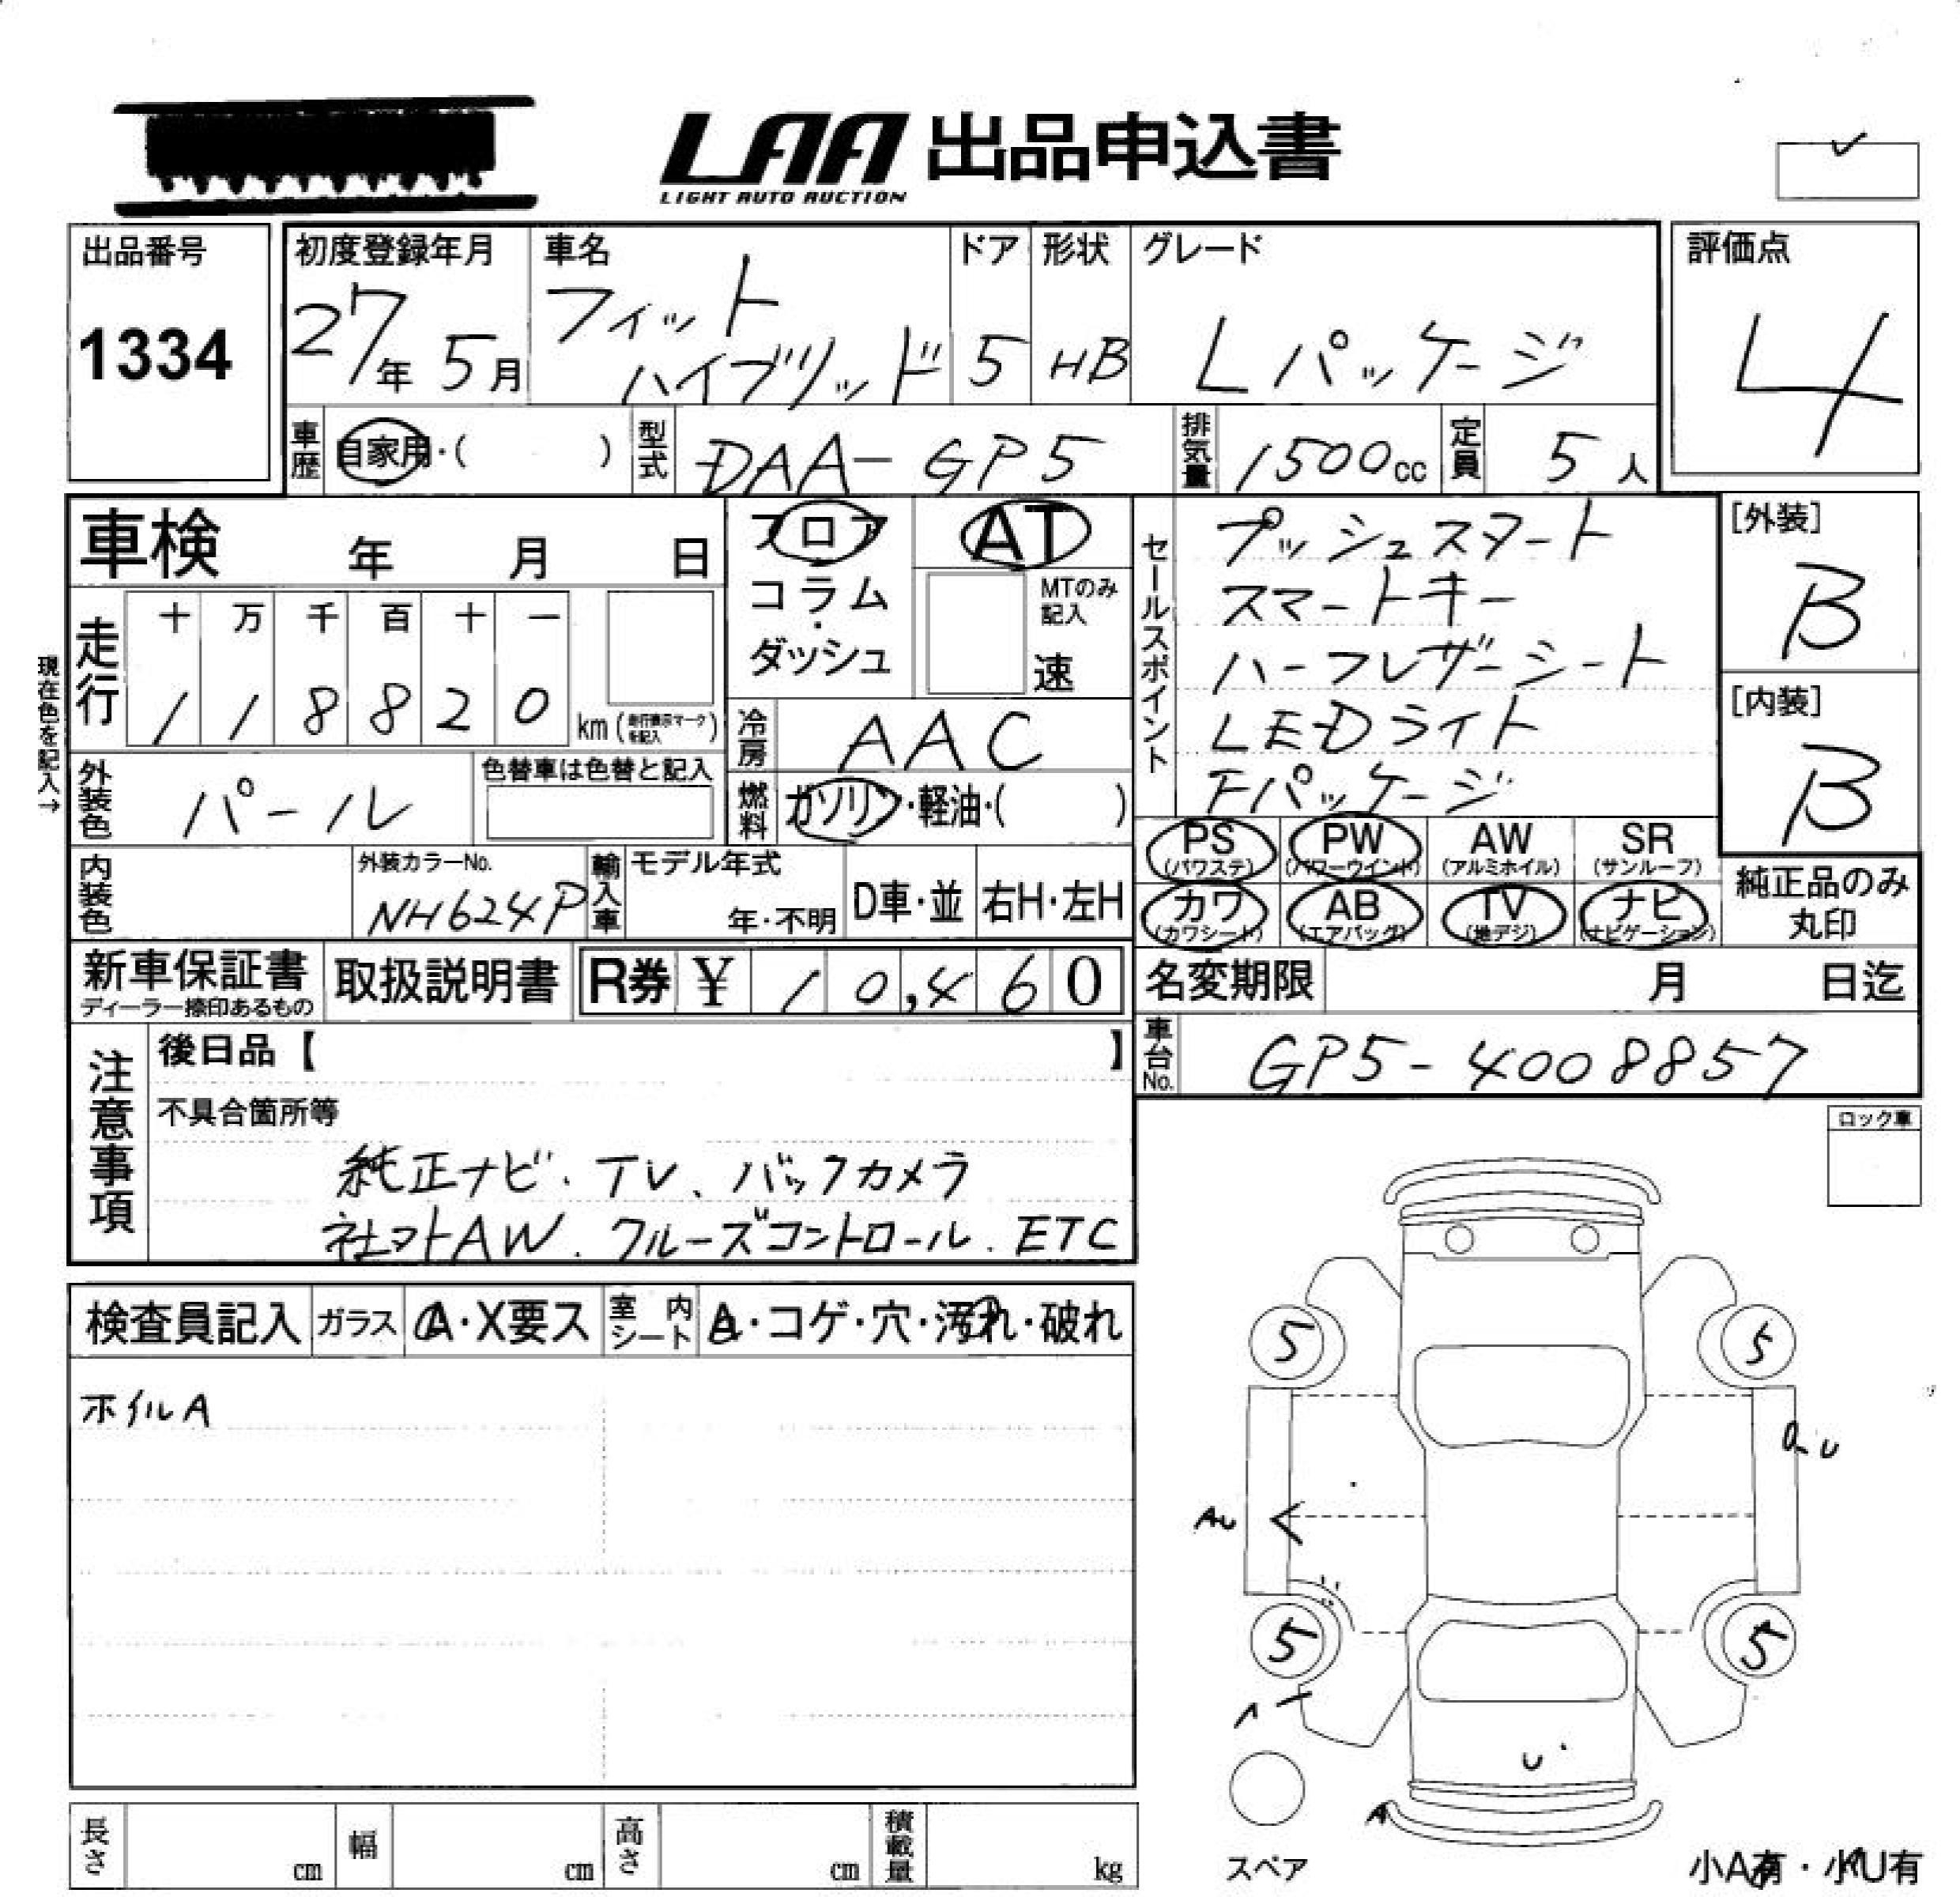 LAA 出品申込書
LIGHT AUTO AUCTION
出品番号
1334
初度登録年月
27年 5月
車名
フィット
ハイブリッド
ドア
5
形状
HB
グレード
Lパッケージ
評価点
4
車歴 自家用・( )
型式 DAA-GP5
排気量 1500cc
定員 5人
車検 年 月 日
フロア
コラム
・
ダッシュ
AT
MTのみ
記入
速
セールスポイント
プッシュスタート
スマートキー
ハーフレザーシート
LEDライト
Fパッケージ
[外装]
B
[内装]
B
現在色を記入→
走行
十 万 千 百 十 一
1 1 8 8 2 0 km (走行表示マークを記入)
冷房 AAC
外装色 パール
色替車は色替と記入
燃料 ガソリン・軽油・( )
PS
(パワステ)
PW
(パワーウインド)
AW
(アルミホイル)
SR
(サンルーフ)
カワ
(カワシート)
AB
(エアバッグ)
TV
(地デジ)
ナビ
(ナビゲーション)
純正品のみ
丸印
内装色
外装カラーNo.
NH624P
輸入車
モデル年式
年・不明
D車・並
右H・左H
新車保証書
ディーラー捺印あるもの
取扱説明書
R券 ¥ 10,460
名変期限 月 日迄
車台No. GP5-4008857
注意事項
後日品【 】
不具合箇所等
純正ナビ、TV、バックカメラ
社マトAW、クルーズコントロール、ETC
ロック車
検査員記入
ガラス A・X要ス
室内シート A・コゲ・穴・汚れ・破れ
ホイルA
5
5
AU
U
5
5
U
A
スペア
小A有・小U有
長さ cm
幅 cm
高さ cm
積載量 kg